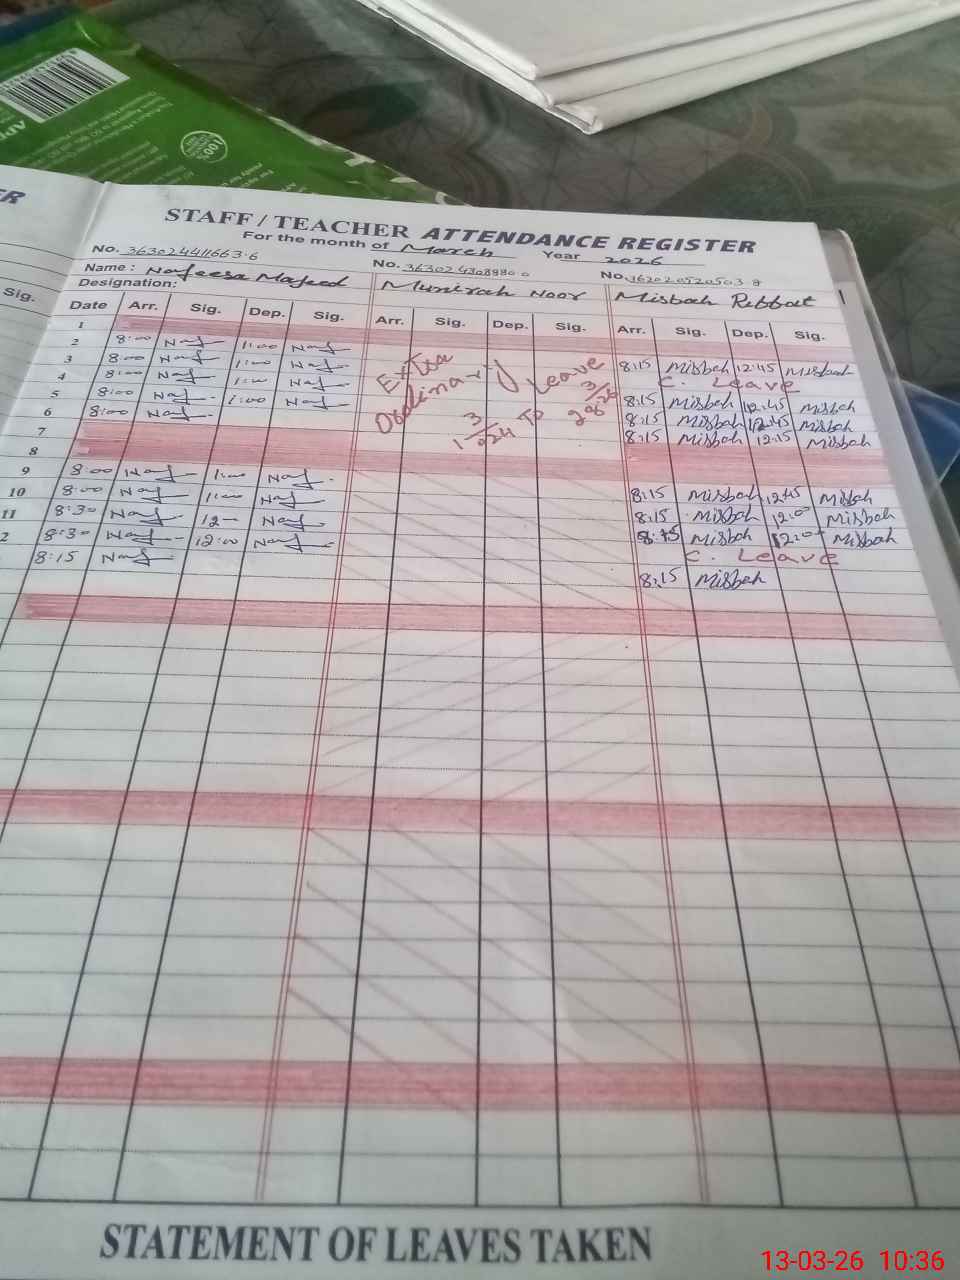 ER
STAFF / TEACHER ATTENDANCE REGISTER
For the month of March Year 2026
No. 363024411663-6 No. 363024308980-0 No. 362020520503-8
Name: Nafeesa Majeed Munirah Noor Misbah Rubbat
Designation:
Sig.
Date Arr. Sig. Dep. Sig. Arr. Sig. Dep. Sig. Arr. Sig. Dep. Sig.
1
2 8:00 Naf 1:00 Naf 8:15 Misbah 12:45 Misbah
3 8:00 Naf 1:00 Naf C. Leave
4 8:00 Naf 1:00 Naf 8:15 Misbah 12:45 Misbah
5 8:00 Naf 1:00 Naf 8:15 Misbah 12:45 Misbah
6 8:00 Naf 8:15 Misbah 12:15 Misbah
Extra
Ordinary Leave
7
8
9 8:00 Naf 1:00 Naf 8:15 Misbah 12:45 Misbah
10 8:00 Naf 1:00 Naf 8:15 Misbah 12:00 Misbah
11 8:30 Naf 12- Naf 8:15 Misbah 12:00 Misbah
2 8:30 Naf 12:00 Naf C. Leave
8:15 Naf 8:15 Misbah
STATEMENT OF LEAVES TAKEN
13-03-26 10:36
100%